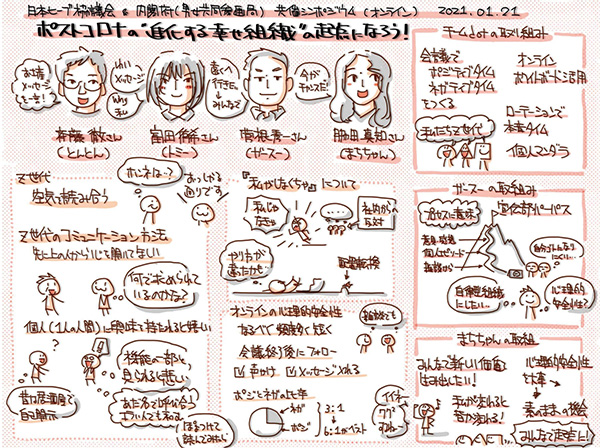 日本ヒーブ協議会 & 内閣府(男女共同参画局) 共催シンポジウム (オンライン) 2021.01.21
ポストコロナの"進化する幸せ組織"の起点になろう!
メッセージを一言!
Why メッセージ
Why 私
遠くへ行きたい→みんなで
今がチャンスだ!
斉藤 徹さん
(とんとん)
冨田 侑希さん
(トミー)
曽根 秀一さん
(ガースー)
胎田 真知さん
(まちちゃん)
チームdotの取り組み
会議で
ポジティブタイム
ネガティブタイム
をつくる
私たちZ世代
オンライン
ホワイトボード活用
ローテーションで
本音タイム
個人マンダラ
Z世代
空気を読み合う
ホンネは…?
おっしゃる通りです
Z世代のコミュニケーション方法
先に上の人から心を開いてない
何で求められているのかな?
個人(1人の人間)に興味を持たれると嬉しい
昔は居酒屋で自己開示
機能の一部と見られると悲しい
あだ名で呼び合う
ほまつって読んでみたり
『私がしなくちゃ』について
私がしなきゃ
社内から反対
やり方が違ったかも…
配置転換
オンラインの心理的安全性
なるべく頻度多く短く
雑談でも
会議終了後にフォロー
声かけ メッセージ入れる
ポジとネガの比率
ネガ
ポジ
3:1
6:1がベスト
ガースーの取組み
宣伝部パーパス
個人エピソード
自分ゴトになりにくい…
自律型組織にしたい…
心理的安全性?
まちちゃんの取組
みんなで新しい価値を生み出したい!
私が変わると皆が変わる!
心理的安全性
と本音
素のままの機会
みんなで起点に!